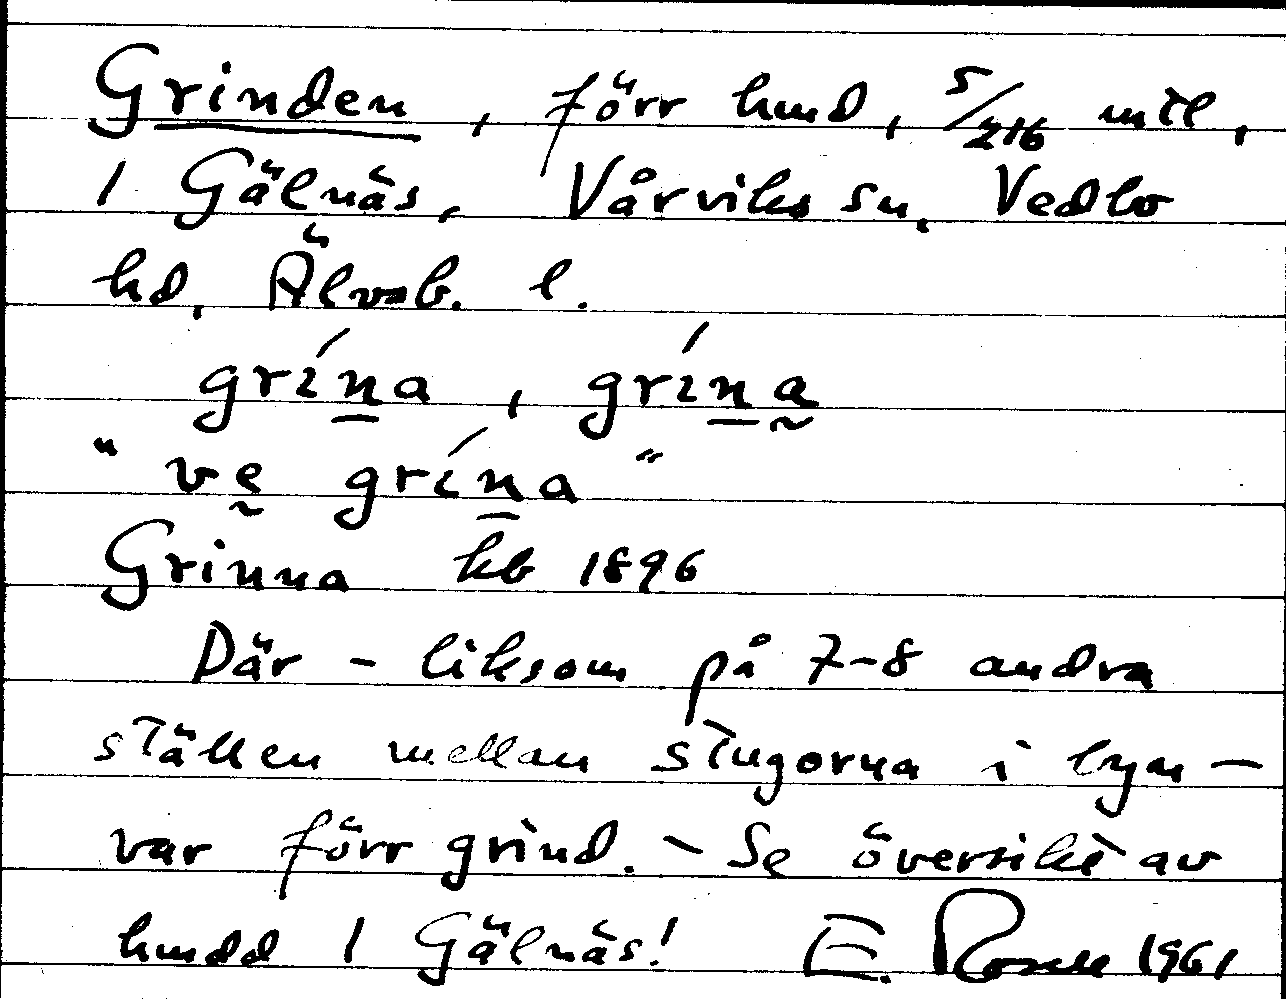 Grinden, förr hmd, 5/216 mtl,
1 Gälnäs, Vårviks sn, Vedbo
hd, Älvsb. l.
grína, grína
"ve grína"
Grinna kb 1896
Där - liksom på 7-8 andra
ställen mellan stugorna i byn -
var förr grind. - Se översikt av
hmdd 1 Gälnäs! E. Rosell 1961